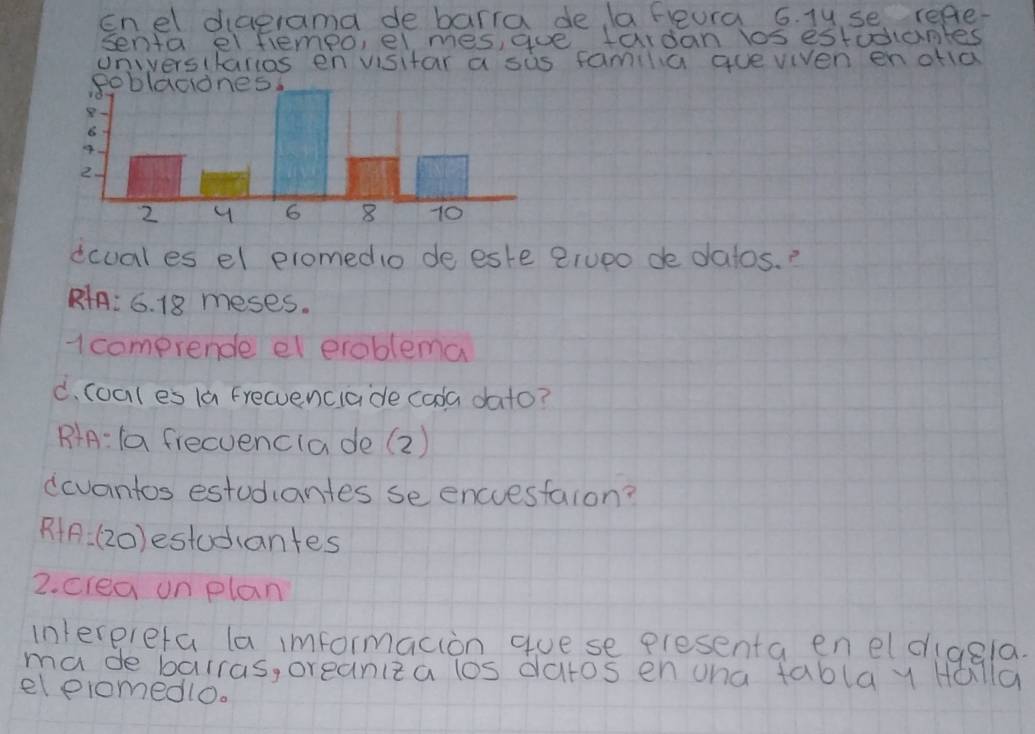 En el diagrama de barra de la figura 6.14 se repre-
senta el tiempo, el mes, que tardan los estudiantes
universitarios en visitar a sus familia que viven en otra
poblaciones.
10
8
6
4
2
2 4 6 8 10
¿cual es el promedio de este grupo de datos.?
RtA: 6.18 meses.
1 comprende el problema
¿.cual es la frecuencia de cada dato?
RtA: la frecuencia de (2)
¿cuantos estudiantes se encuestaron?
RtA:(20) estudiantes
2. crea un plan
interpreta la imformación que se presenta en el diagra-
ma de barras, organiza los datos en una tabla y Halla
el promedio.